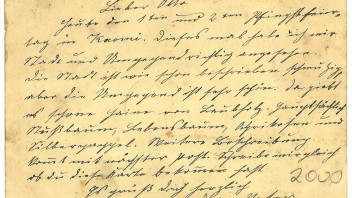 Lieber Otto
Heute den 1ten und 2ten Pfingstfeier-
tag in Karmi. Dieses mal habe ich mir
Stadt und Umgegend richtig angesehen.
Die Stadt ist wie schon beschrieben schmutzig,
aber die Umgegend ist sehr schön. Da giebt
es schöne Haine von Laubholz. Hauptsächlich
Nußbaum, Lebensbaum, Aprikosen und
Silberpappel. Weitere Beschreibung
kommt mit nächster Post. Schreibe mir gleich
ob du diese Karte bekommen hast
2000
Es grüß dich herzlich